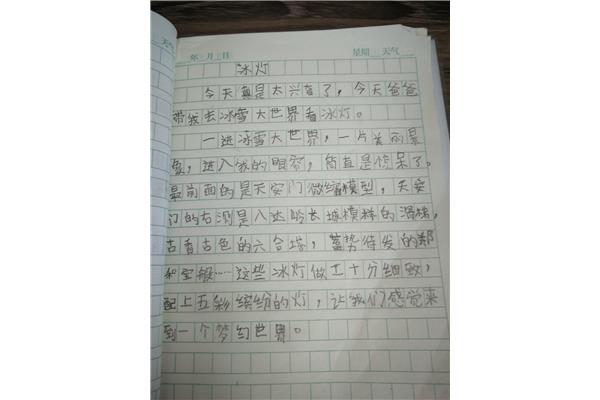 天气
年 月 日 星期 天气
冰灯
今天真是太兴奋了，今天爸爸
带我去冰雪大世界看冰灯。
一进冰雪大世界，一片美丽景
，进入我的眼帘，简直是惊呆了。
最前面的是天安门微缩模型，天安
门的右测是八达岭长城模样的滑梯，
古香古色的六合塔，蓄势待发的郑
和宝船……这些冰灯做工十分细致，
配上五彩缤纷的灯，让我们感觉来
到一个梦幻世界。